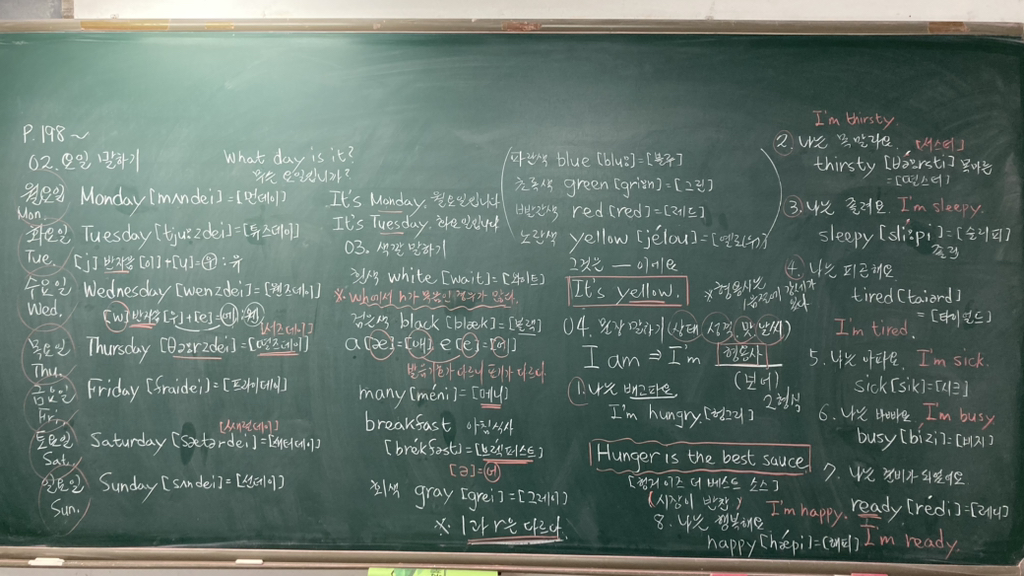 P. 198~
02. 요일 말하기
What day is it?
무슨 요일입니까?
월요일 Monday [mʌndei]=[먼데이]
Mon.
화요일 Tuesday [tju:zdei]=[튜즈데이]
Tue. [j] 반자음 [이]+[u]=유 : 유
수요일 Wednesday [wenzdei]=[웬즈데이]
Wed. [w] 반자음 [우]+[e]=[에] 웨
목요일 Thursday [θə:rzdei]=[떤즈데이]
[써즈데이]
Thu.
금요일 Friday [fraidei]=[프라이데이]
Fri.
토요일 Saturday [sætərdei]=[새터데이]
Sat.
일요일 Sunday [sʌndei]=[선데이]
Sun.
It's Monday. 월요일입니다
It's Tuesday. 화요일입니다
03. 색깔 말하기
흰색 white [wait]=[와이트]
※ wh에서 h가
검은색 black [blæk]=[블랙]
a [æ]=[애] e [e]=[에]
발음기호가 다르니 소리가 다르다
many [méni]=[메니]
breakfast 아침식사
[brékfəst]=[브랙퍼스트]
[ə]=[어]
회색 gray [grei]=[그레이]
※ l과 r은 다르다
파란색 blue [blu:]=[블루]
초록색 green [gri:n]=[그린]
빨간색 red [red]=[레드]
노란색 yellow [jélou]=[옐로우]
그것은 — 이에요
It's yellow.
※ 형용사는
04. 문장 말하기 (상태 성질 맛 날씨)
I am ⇒ I'm 형용사
(보어)
2형식
1. 나는 배고파요
I'm hungry. [헝그리]
Hunger is the best sauce.
[헝거 이즈 더 베스트 소스]
(시장이 반찬)
8. 나는 행복해요 I'm happy.
happy [hǽpi]=[해피]
I'm thirsty.
2. 나는 목말라요 [써스티]
thirsty [θə́:rsti] 목마른
=[떤스티]
3. 나는 졸려요 I'm sleepy.
sleepy [slí:pi]=[슬리피]
졸린
4. 나는 피곤해요
tired [taiərd]
=[타이얼드]
I'm tired.
5. 나는 아파요 I'm sick.
sick [sik]=[시크]
6. 나는 바빠요 I'm busy.
busy [bízi]=[비지]
7. 나는 준비가 되었어요
ready [rédi]=[레디]
I'm ready.